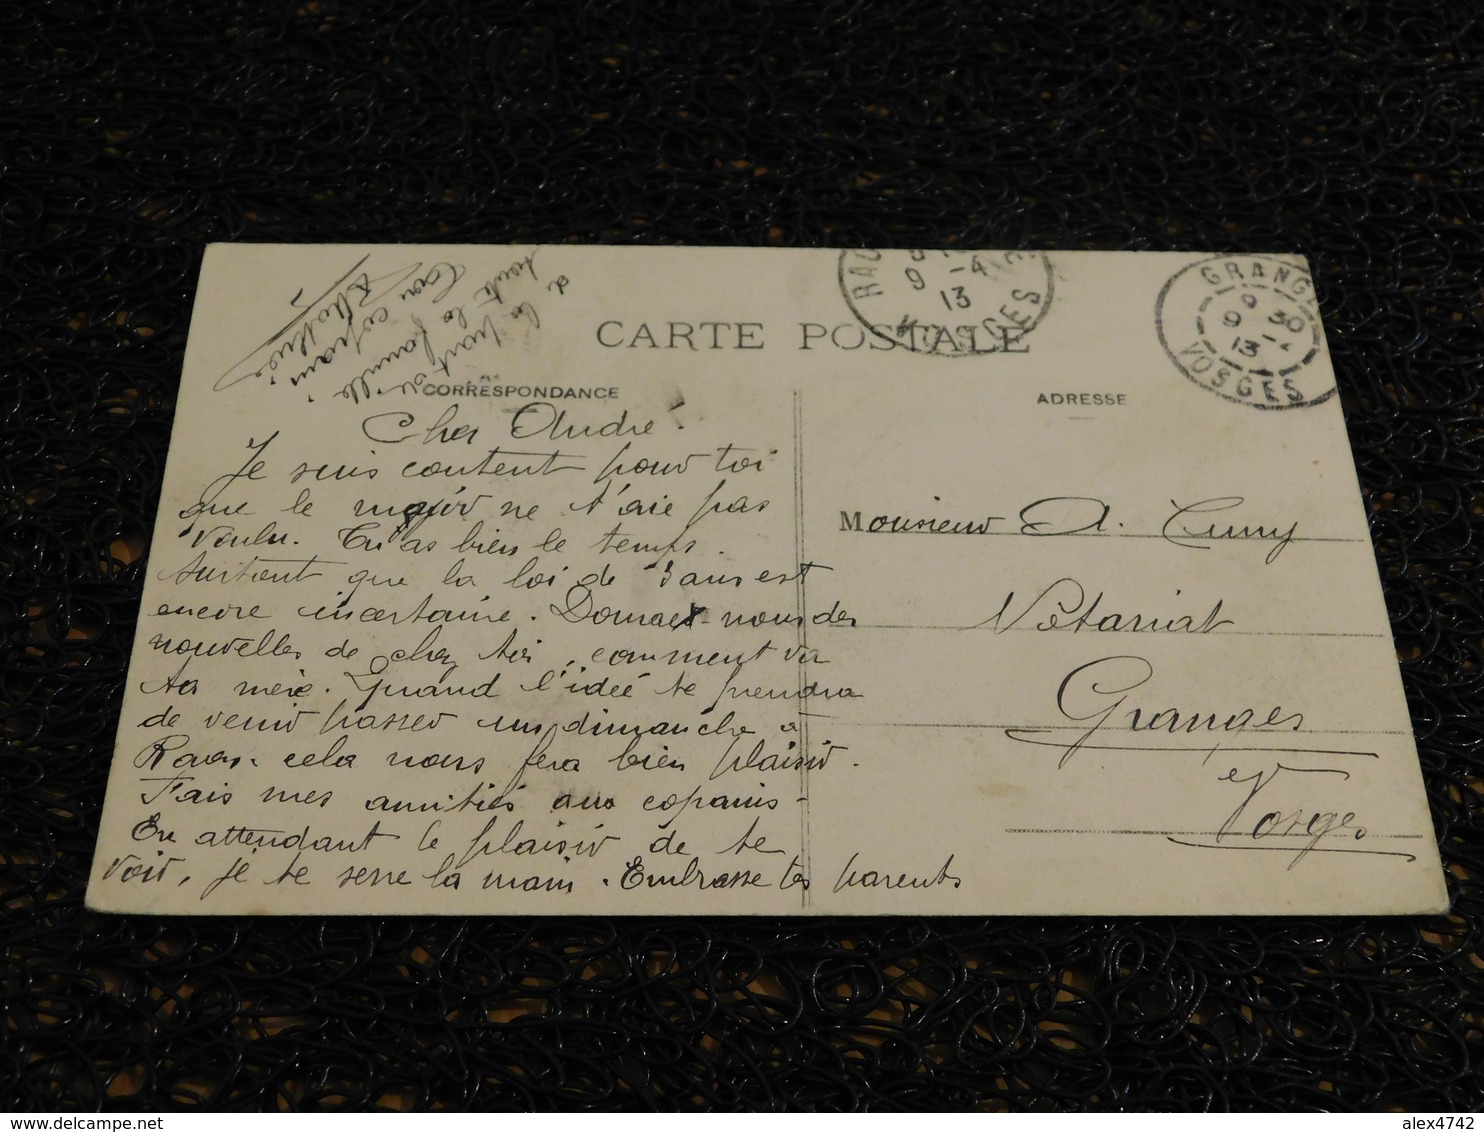 à la porte
toute la famille
Ton copain
CARTE POSTALE
CORRESPONDANCE
ADRESSE
RAO
9 -4
13
VOSGES
GRANGE
9 30
9 -4
13
VOSGES
Cher André.
Je suis content pour toi
que le major ne t'aie pas
voulu. Tu as bien le temps.
surtout que la loi de 3 ans est
encore incertaine. Donnes-nous des
nouvelles de chez toi, comment va
ta mère. Quand l'idée te prendra
de venir passer un dimanche à
Raon. cela nous fera bien plaisir.
Fais mes amitiés aux copains -
En attendant le plaisir de te
voir, je te serre la main. Embrasse tes parents
Monsieur A. Cuny
Notariat
Granges
Vosges
delcampe.net
alex4742